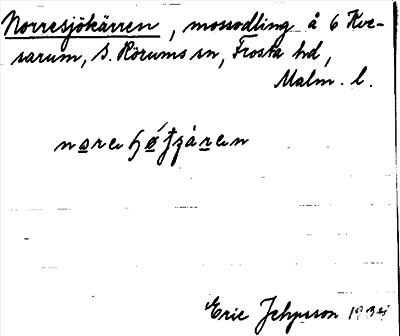 Norresjökärren, mossodling å 6 Kve-
sarum, S. Rörums sn, Frosta hd,
Malm. l.
Eric Jepsson 1934